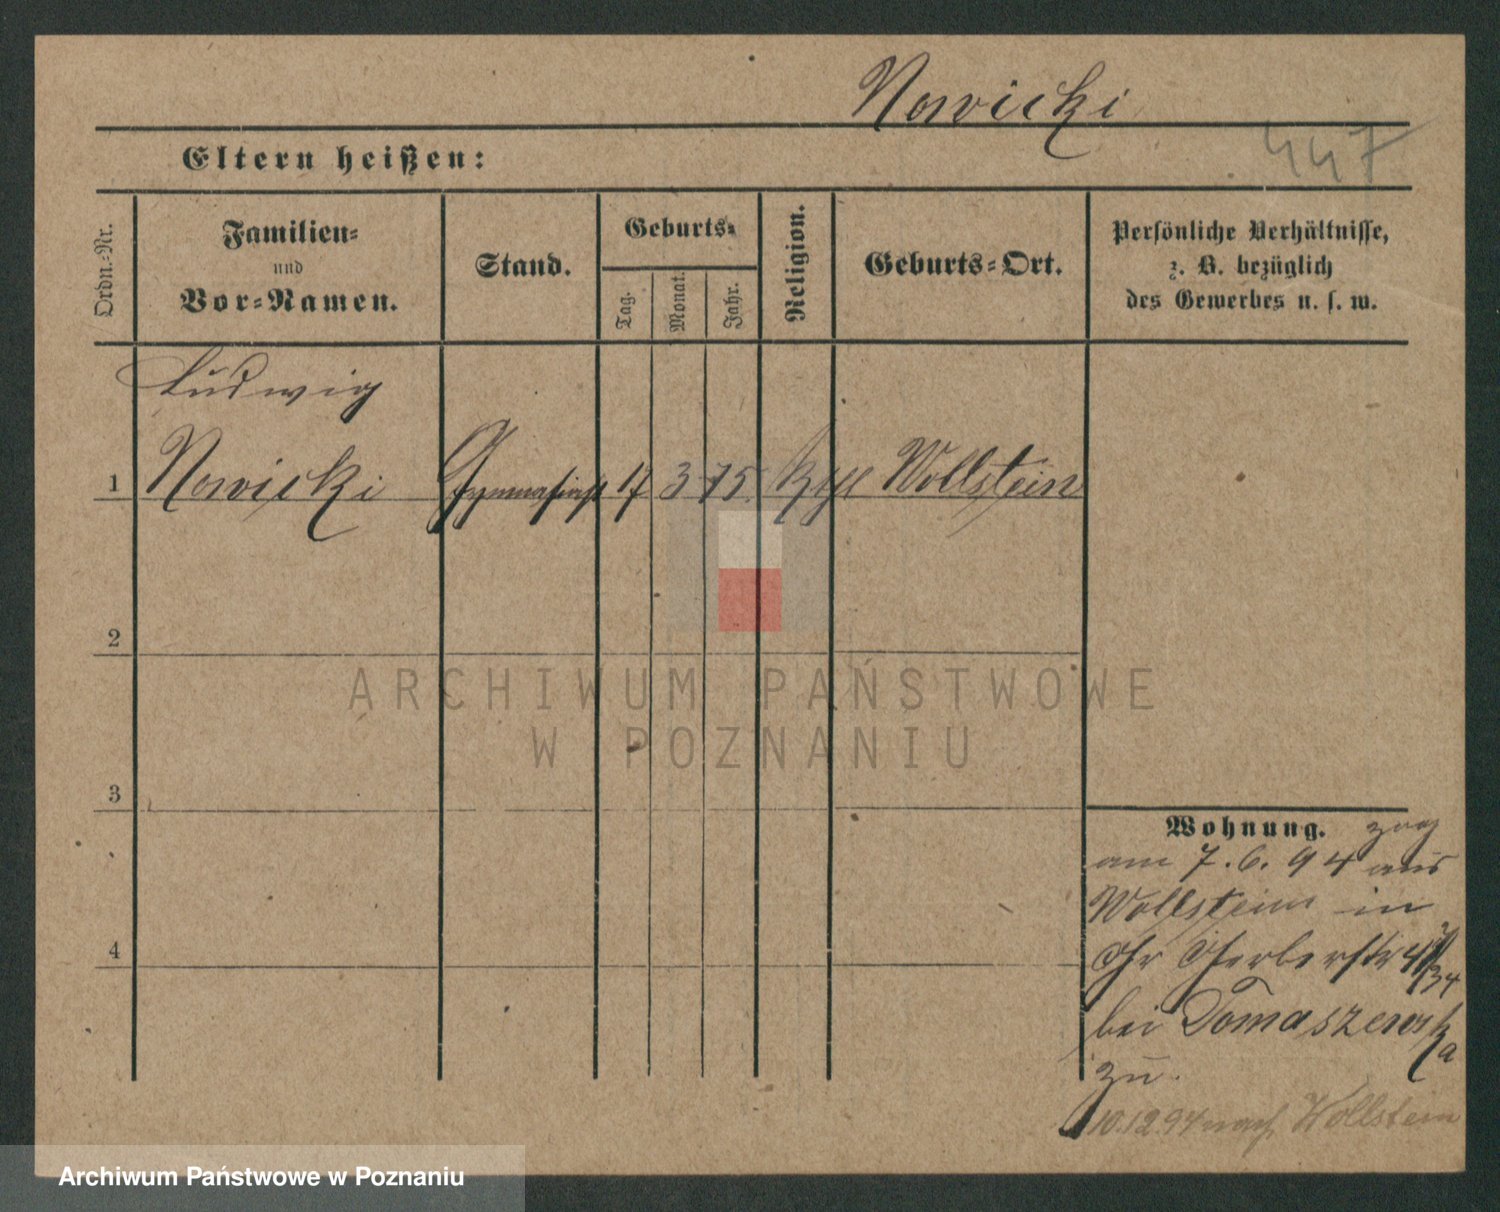 Nowicki
447
Eltern heißen:
Ordn.-Nr.
Familien-
und
Vor-Namen.
Stand.
Geburts-
Tag.
Monat.
Jahr.
Religion.
Geburts-Ort.
Persönliche Verhältnisse,
z. B. bezüglich
des Gewerbes u. s. w.
Ludwig
1 Nowicki Gymnasiast 17 3 75 kth Wollstein
2
3
4
Wohnung. zog
am 7.6.94 aus
Wollstein in
Gr Gerberstr
bei Tomaszewska
zu.
10.12.94 nach Wollstein
ARCHIWUM PAŃSTWOWE
W POZNANIU
Archiwum Państwowe w Poznaniu